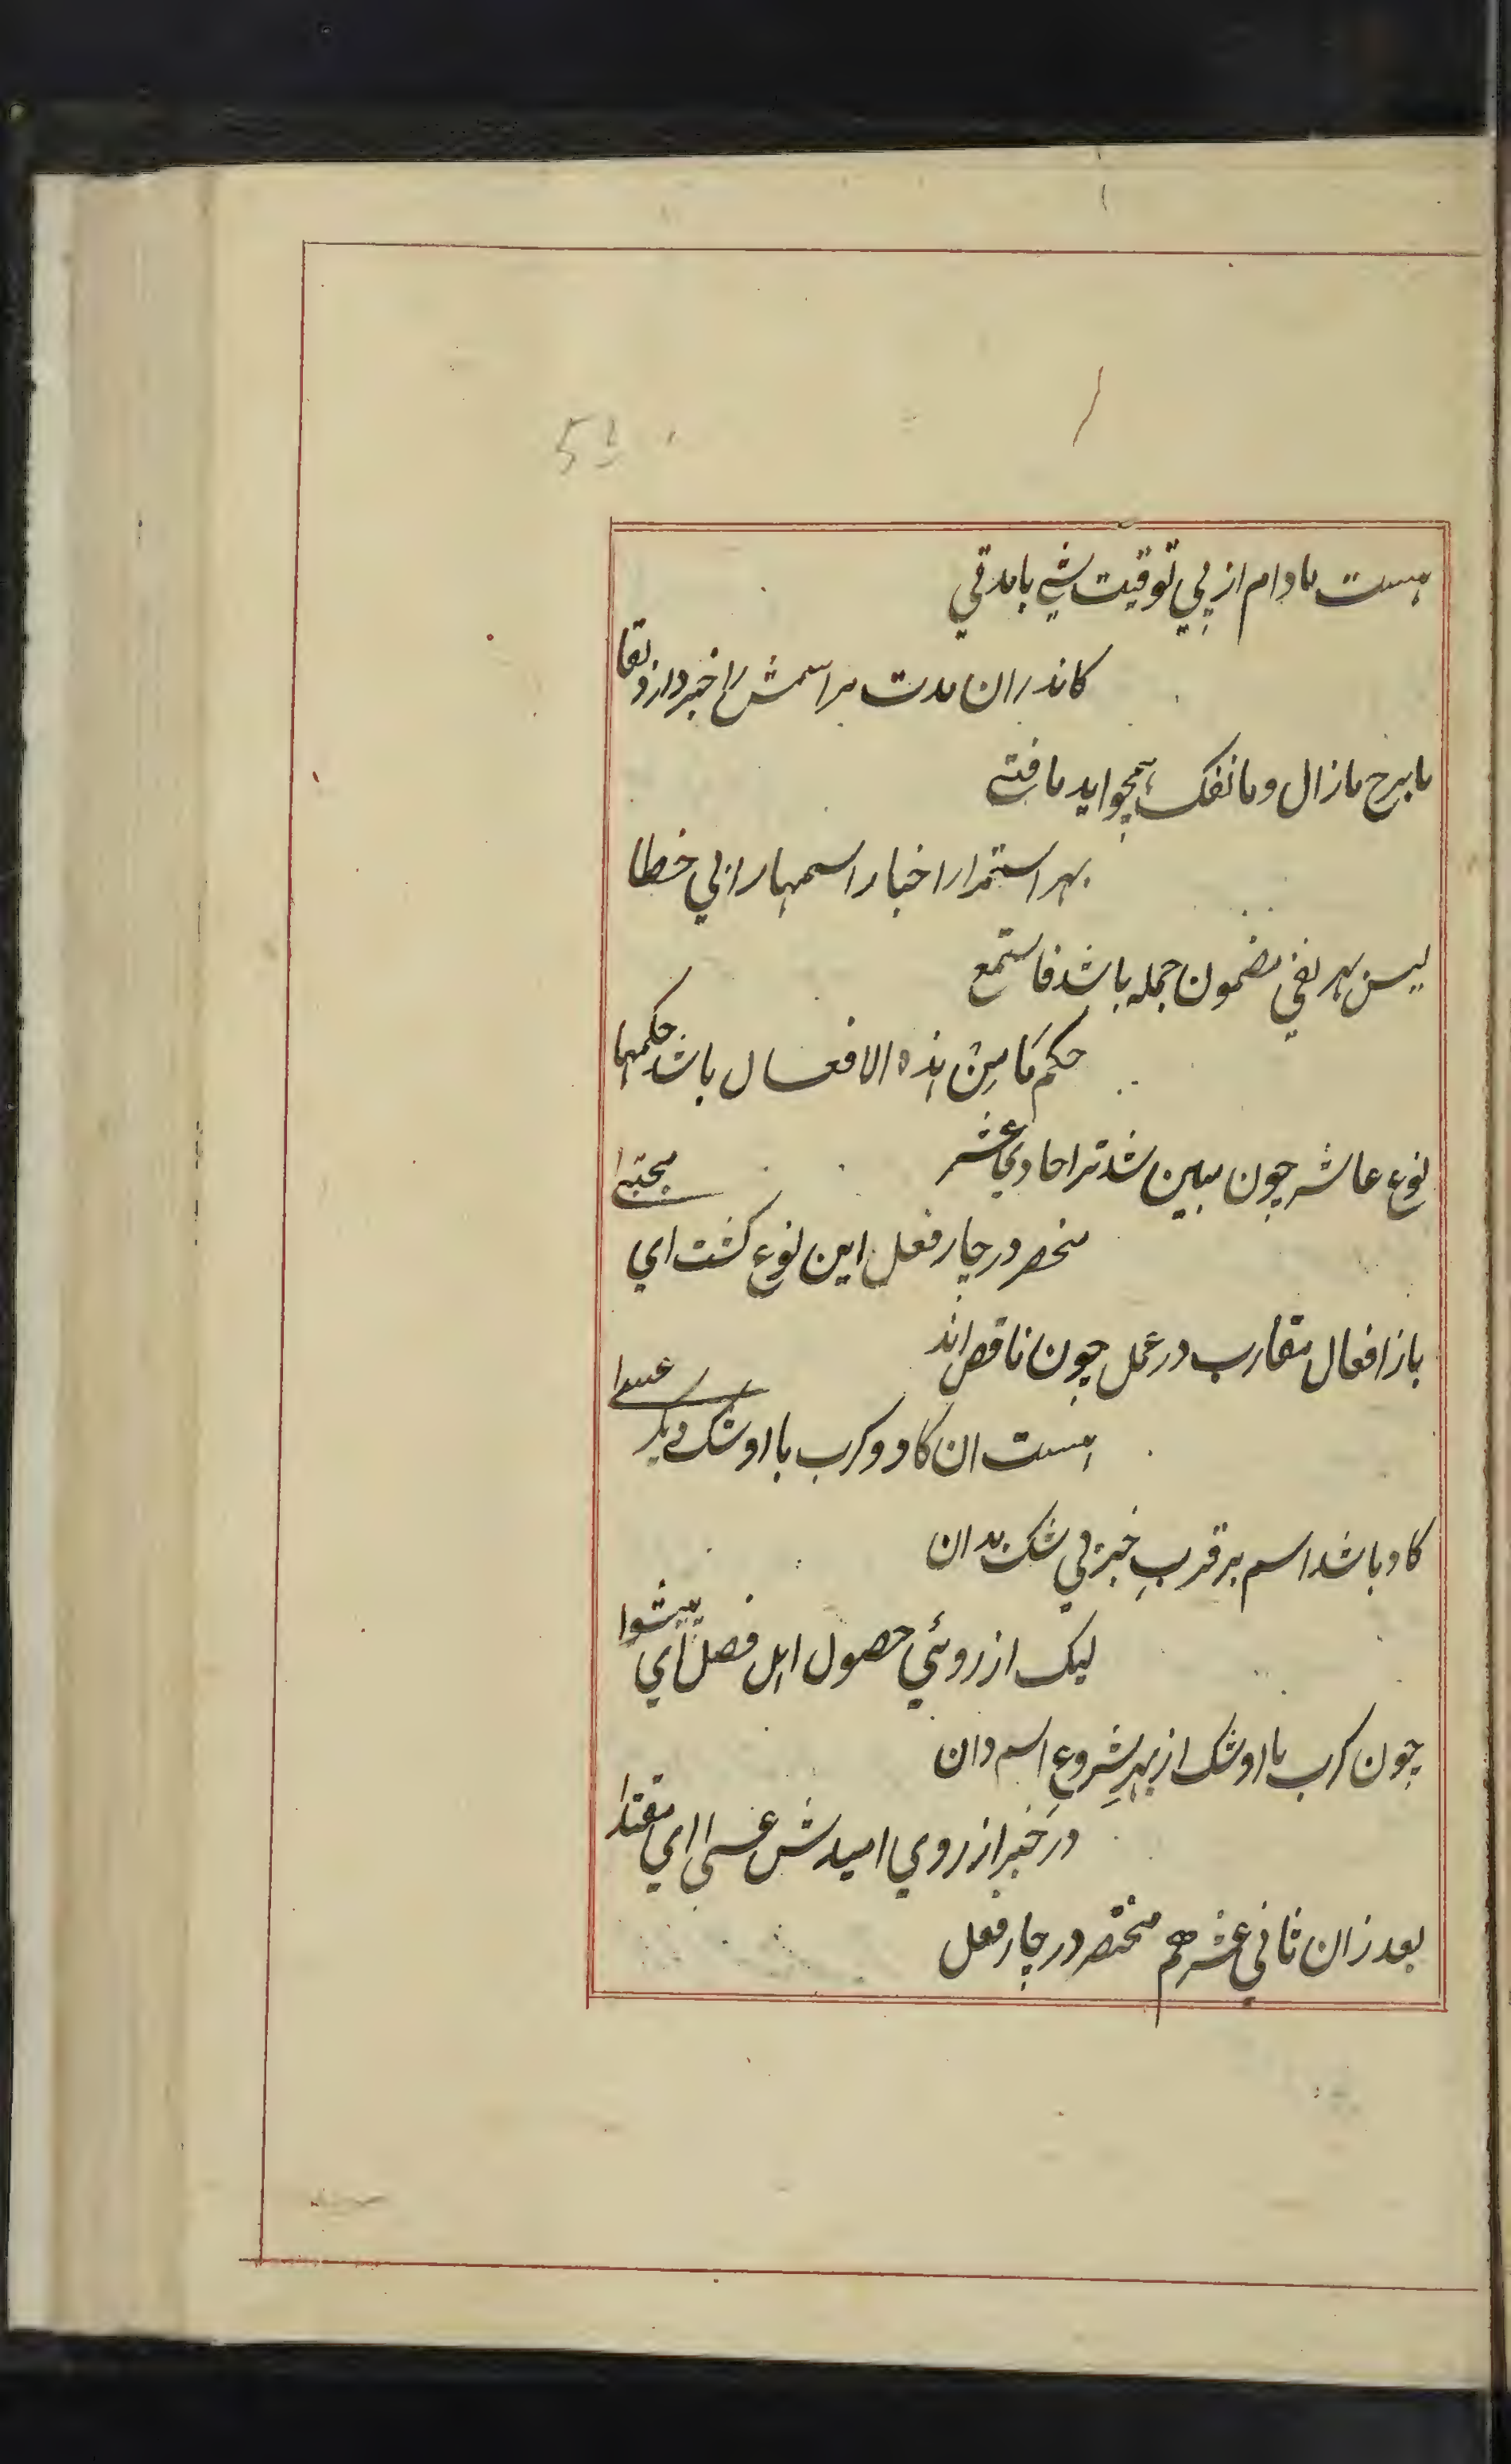 هست مادام از پي توقيت شي با مدتي
كاندران مدت مر اسمش را خبر دارد بقا
مابرح مازال و ماانفك همچو ايد مافتي
بهر استمرار اخبار اسمها را بي خطا
ليس بهر نفي مضمون جمله باشد فاستمع
حكم مَا مِنْ هذه الافعال باشد حكمها
نوع عاشر چون مبين شد ترا حادي عشر
منحصر در چار فعل اين نوع گشت اي مجتبي
باز افعال مقارب در عمل چون ناقص اند
هست ان كاد و كرب با اوشك ديگر عسي
كاد باشد اسم بر قربِ خبر بي شك بدان
ليك از روئي حصول اهل فصل اي پيشوا
چون كرب با اوشك از بهرِ شروع اسم دان
در خبر از روي اميدش عسي اي مقتدا
بعد زان ثاني عشر هم منحصر در چار فعل